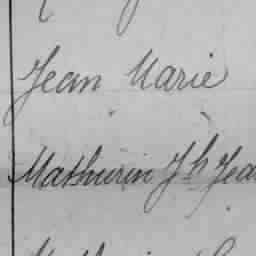 Jean Marie
Mathurin Jh Jean